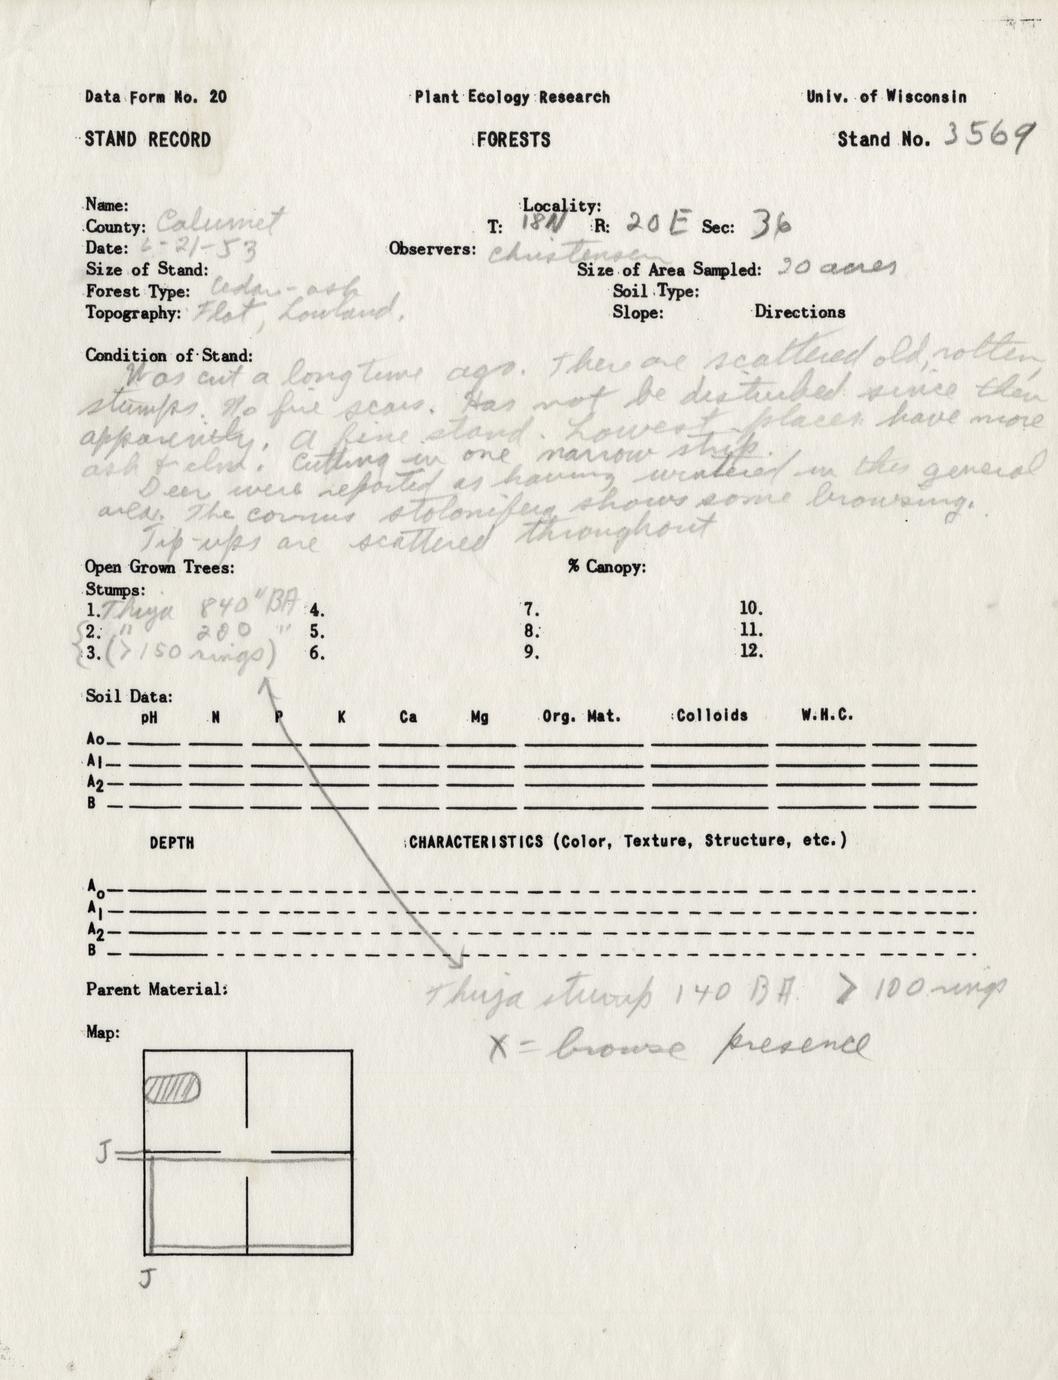 Data Form No. 20 Plant Ecology Research Univ. of Wisconsin
STAND RECORD FORESTS Stand No. 3569
Name: Locality:
County: Calumet T: 18N R: 20E Sec: 36
Date: 6-21-53 Observers: Christensen
Size of Stand: Size of Area Sampled: 20 acres
Forest Type: Cedar-ash Soil Type:
Topography: Flat, Lowland. Slope: Directions
Condition of Stand:
Was cut a long time ago. There are scattered old, rotten,
stumps. No fire scars. Has not be disturbed since then
apparently. A fine stand. Lowest places have more
ash & elm. Cutting in one narrow strip.
Deer were reported as having wintered in this general
area. The cornus stolonifera shows some browsing.
Tip-ups are scattered throughout
Open Grown Trees: % Canopy:
Stumps:
1. Thuja 840" BA 4. 7. 10.
2. " 200 " 5. 8. 11.
3. (>150 rings) 6. 9. 12.
Soil Data:
pH N P K Ca Mg Org. Mat. Colloids W.H.C.
Ao
A1
A2
B
DEPTH CHARACTERISTICS (Color, Texture, Structure, etc.)
Ao
A1
A2
B
Parent Material: Thuja stump 140 BA. > 100 rings
Map:
X = browse presence
J
J